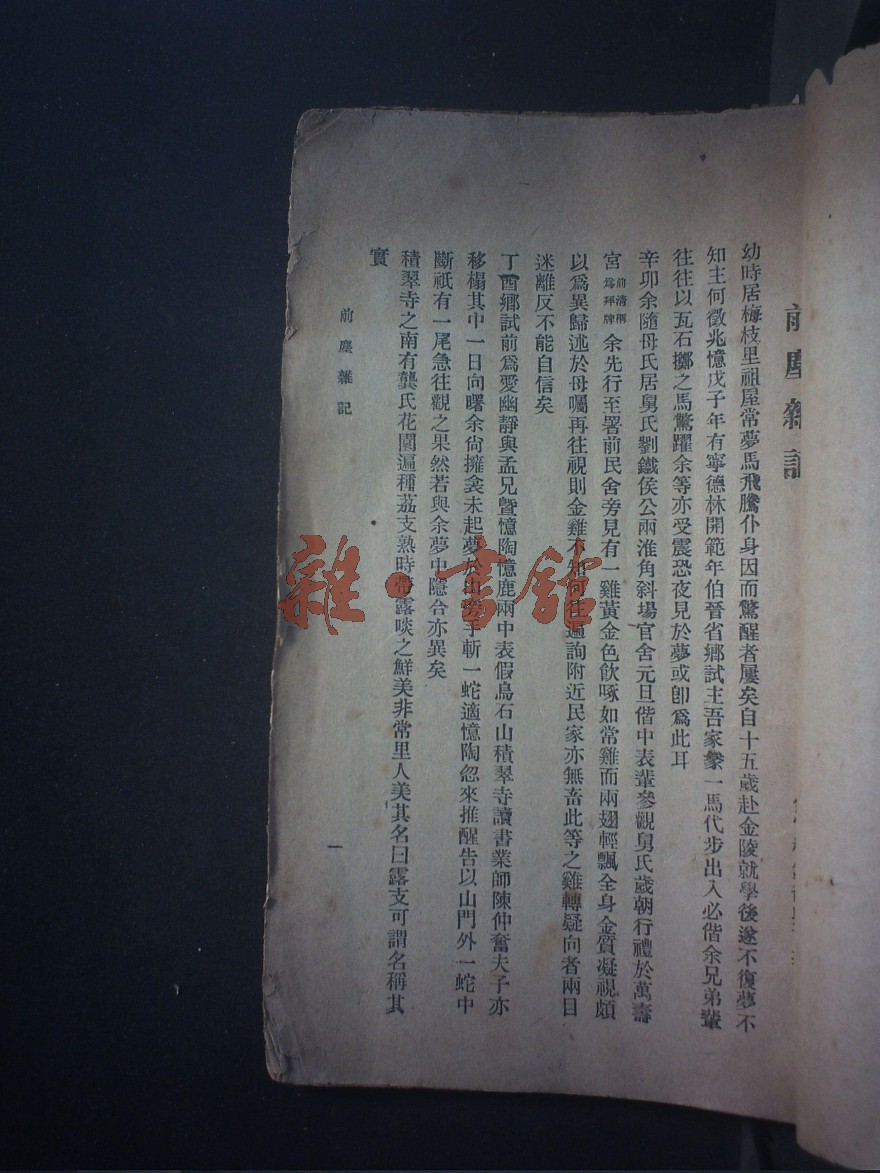 前塵雜記
幼時居梅枝里祖屋常夢馬飛騰仆身因而驚醒者屢矣自十五歲赴金陵就學後遂不復夢不
知主何徵兆憶戊子年有寧德林開範年伯晉省鄉試主吾家豢一馬代步出入必偕余兄弟輩
往往以瓦石擲之馬驚躍余等亦受震恐夜見於夢或卽爲此耳
辛卯余隨母氏居舅氏劉鐵侯公兩淮角斜場官舍元旦偕中表輩參觀舅氏歲朝行禮於萬壽
宮前淸稱爲拜牌余先行至署前民舍旁見有一雞黃金色飮啄如常雞而兩翅輕飄全身金質凝視頗
以爲異歸述於母囑再往視則金雞不知何往遍詢附近民家亦無畜此等之雞轉疑向者兩目
迷離反不能自信矣
丁酉鄉試前爲愛幽靜與孟兄曁憶陶憶鹿兩中表假烏石山積翠寺讀書業師陳仲奮夫子亦
移榻其中一日向曙余尙擁衾未起夢於山旁手斬一蛇適憶陶忽來推醒告以山門外一蛇中
斷祇有一尾急往觀之果然若與余夢中隱合亦異矣
積翠寺之南有龔氏花園遍種荔支熟時帶露啖之鮮美非常里人美其名曰露支可謂名稱其
實
前塵雜記
一
雜·書館